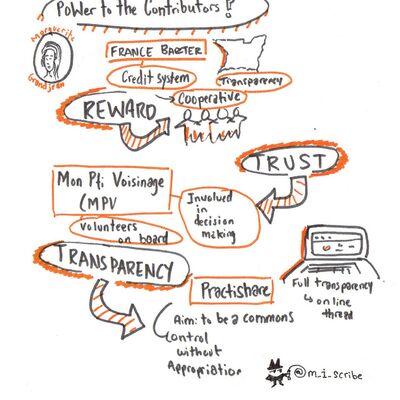 Power to the Contributors !
Marguerite
Grandjean
FRANCE BARTER
Credit system
Transparency
Cooperative
REWARD
TRUST
Mon Pti Voisinage
(MPV
Involved
in
decision
making
Volunteers
on board
TRANSPARENCY
Practishare
Full transparency
↳ on line
thread
Aim: to be a commons
Control
without
Appropriation
@m_i_scribe